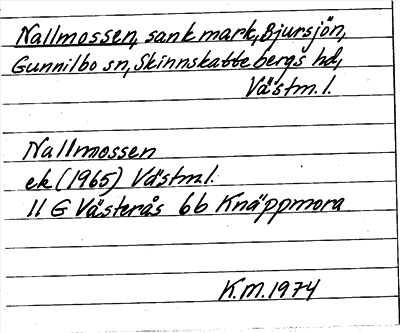 Nallmossen, sank mark, Bjursjön,
Gunnilbo sn, Skinnskattebergs hd,
Västm. l.
Nallmossen
ek (1965) Västm. l.
11 G Västerås 6b Knäppmora
K.M. 1974